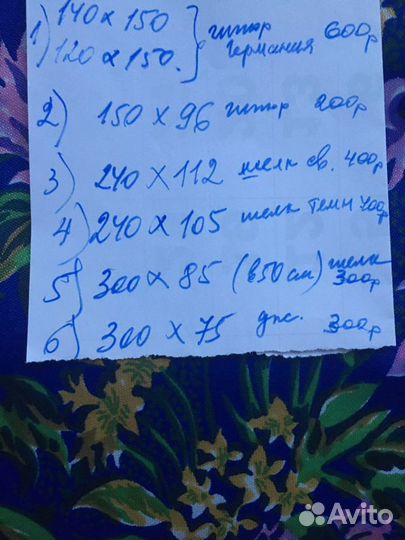 1) 140 x 150 } штор 600р
120 x 150. Германия
2) 150 x 96 штор 200р
3) 240 x 112 шелк св. 400р
4) 240 x 105 шелк темн 400р
5) 300 x 85 (в50см) шелк 300р
6) 300 x 75 300р
Avito